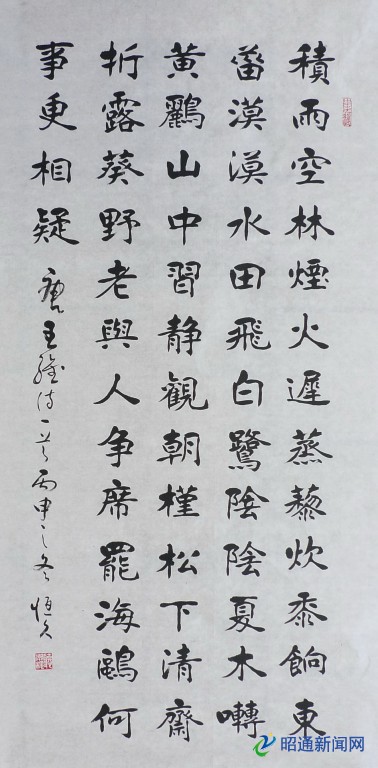 積雨空林煙火遲蒸藜炊黍餉東
菑漠漠水田飛白鷺陰陰夏木囀
黄鸝山中習静觀朝槿松下清齋
折露葵野老與人争席罷海鷗何
事更相疑 唐王維诗一首丙申之冬恒久
昭通新闻网